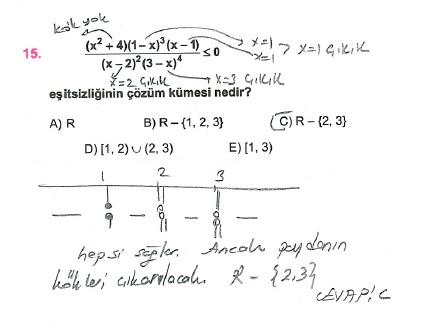 kök yok
15. (x² + 4)(1 – x)³(x – 1) / (x – 2)²(3 – x)⁴ ≤ 0
x=1
x=1 > x=1 Çift K
x=2 Çift K x=3 Çift K
eşitsizliğinin çözüm kümesi nedir?
A) R B) R – {1, 2, 3} C) R – {2, 3}
D) [1, 2) ∪ (2, 3) E) [1, 3)
1 2 3
– – – –
hepsi sağlar. Ancak paydanın
kökleri çıkarılacak R – {2,3}
CEVAP: C